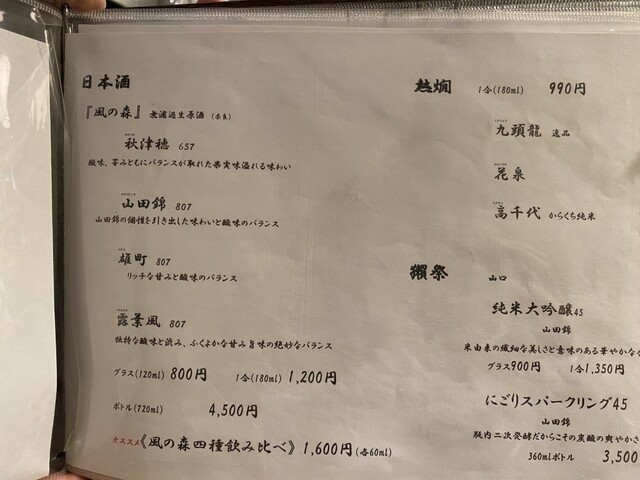 日本酒
『風の森』 無濾過生原酒 (奈良)
秋津穂 657
酸味、苦みともにバランスが取れた果実味溢れる味わい
山田錦 807
山田錦の個性を引き出した味わいと酸味のバランス
雄町 807
リッチな甘みと酸味のバランス
露葉風 807
独特な酸味と渋み、ふくよかな甘み旨味の絶妙なバランス
グラス(120ml) 800円 1合(180ml) 1,200円
ボトル(720ml) 4,500円
オススメ《風の森四種飲み比べ》 1,600円(各60ml)
熱燗 1合(180ml) 990円
九頭龍 逸品
花泉
高千代 からくち純米
獺祭 山口
純米大吟醸45
山田錦
米由来の繊細な美しさと意味のある華やかな
グラス900円 1合1,350円
にごりスパークリング45
山田錦
瓶内二次発酵だからこその炭酸の爽やかさ
360mlボトル 3,500